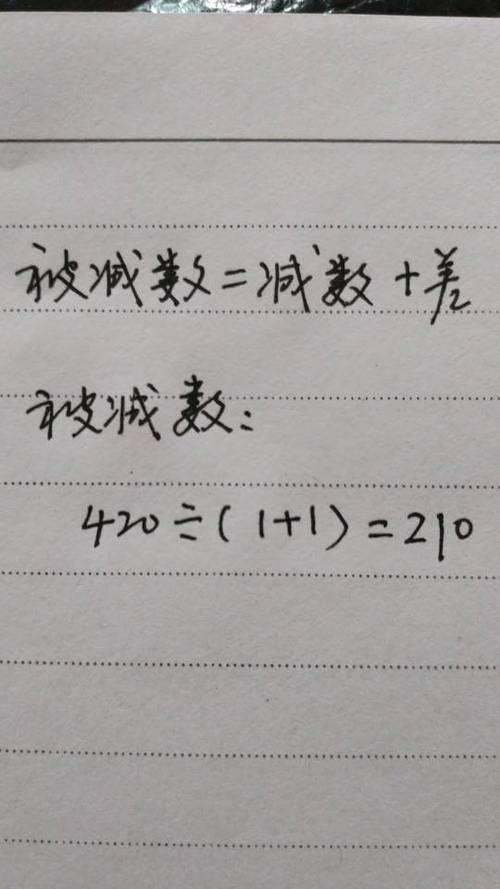 被减数=减数+差
被减数:
420÷(1+1)=210